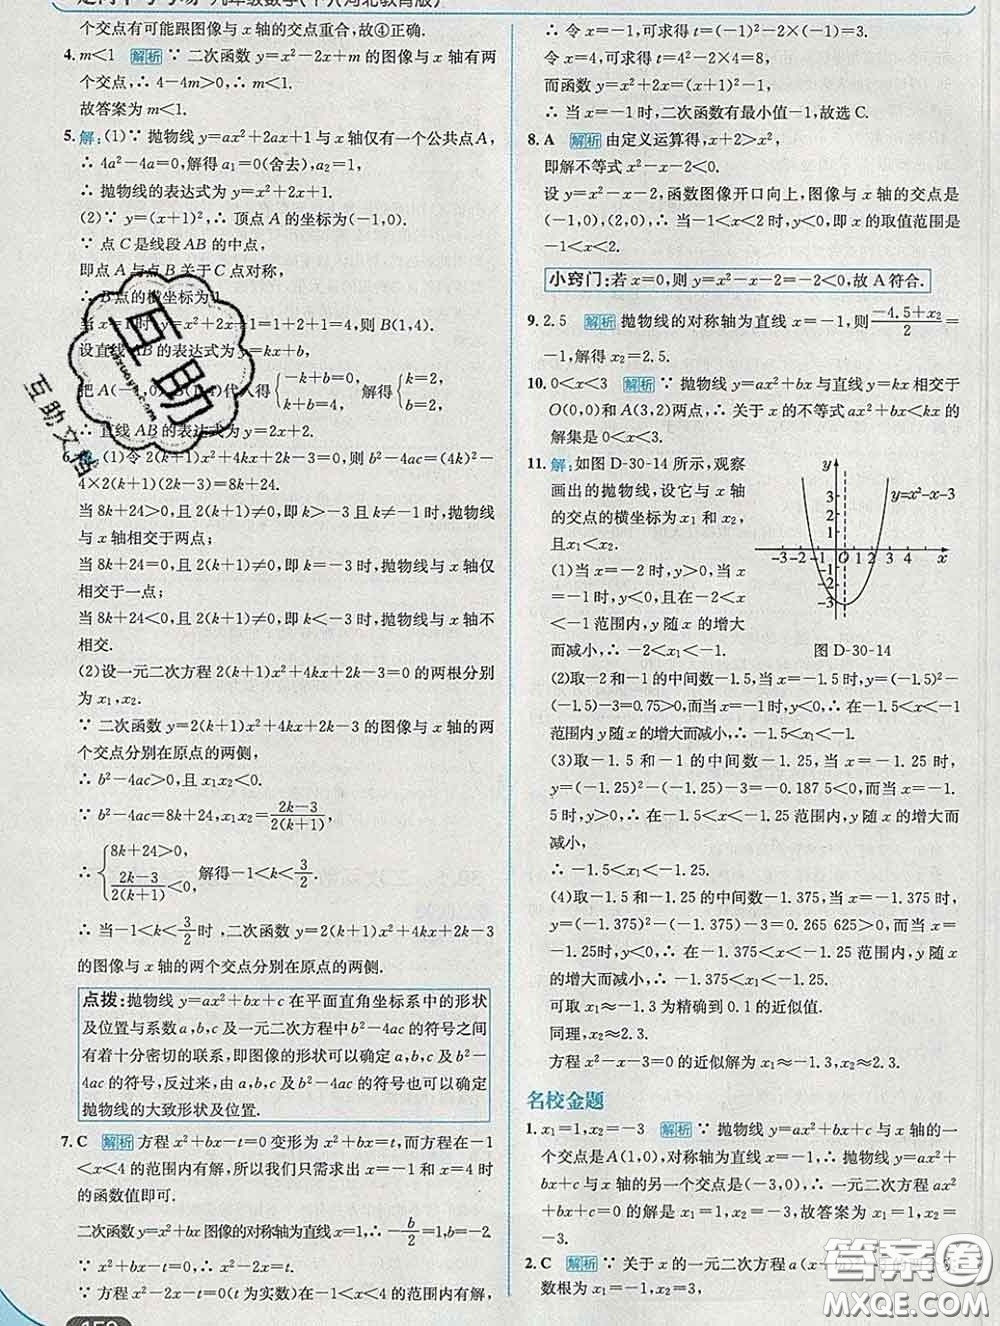 个交点有可能跟图像与x轴的交点重合,故④正确.
4. m<1 解析 ∵ 二次函数 y=x²-2x+m 的图像与 x 轴有两
个交点,∴ 4-4m>0,解得 m<1.
故答案为 m<1.
5. 解:(1)∵ 抛物线 y=ax²+2ax+1 与 x 轴仅有一个公共点 A,
∴ 4a²-4a=0,解得 a₁=0(舍去),a₂=1,
∴ 抛物线的表达式为 y=x²+2x+1.
(2)∵ y=(x+1)²,∴ 顶点 A 的坐标为(-1,0).
∵ 点 C 是线段 AB 的中点,
即点 A 与点 B 关于 C 点对称,
∴ B 点的横坐标为 1.
当 x=1 时,y=x²+2x+1=1+2+1=4,则 B(1,4).
设直线 AB 的表达式为 y=kx+b,
把 A(-1,0),B(1,4)代入得{-k+b=0, k+b=4, 解得{k=2, b=2.
∴ 直线 AB 的表达式为 y=2x+2.
6. 解:(1)令 2(k+1)x²+4kx+2k-3=0,则 b²-4ac=(4k)²-
4×2(k+1)(2k-3)=8k+24.
当 8k+24>0,且 2(k+1)≠0,即 k>-3 且 k≠-1 时,抛物线
与 x 轴相交于两点;
当 8k+24=0,且 2(k+1)≠0,即 k=-3 时,抛物线与 x 轴仅
相交于一点;
当 8k+24<0,且 2(k+1)≠0,即 k<-3 时,抛物线与 x 轴不
相交.
(2)设一元二次方程 2(k+1)x²+4kx+2k-3=0 的两根分别
为 x₁,x₂.
∵ 二次函数 y=2(k+1)x²+4kx+2k-3 的图像与 x 轴的两
个交点分别在原点的两侧,
∴ b²-4ac>0,且 x₁x₂<0.
∵ b²-4ac=8k+24,x₁x₂=(2k-3)/(2(k+1)),
∴ {8k+24>0, (2k-3)/(2(k+1))<0, 解得-1<k<3/2.
∴ 当-1<k<3/2时,二次函数 y=2(k+1)x²+4kx+2k-3
的图像与 x 轴的两个交点分别在原点的两侧.
点拨:抛物线 y=ax²+bx+c 在平面直角坐标系中的形状
及位置与系数 a,b,c 及一元二次方程中 b²-4ac 的符号之间
有着十分密切的联系,即图像的形状可以确定 a,b,c 及 b²-
4ac 的符号,反过来,由 a,b,c 及 b²-4ac 的符号也可以确定
抛物线的大致形状及位置.
7. C 解析 方程 x²+bx-t=0 变形为 x²+bx=t,而方程在-1
<x<4 的范围内有解,所以我们只需求出 x=-1 和 x=4 时
的函数值即可.
二次函数 y=x²+bx 图像的对称轴为直线 x=1,∴ -b/2=1,b=-2.
∵ x²+bx-t=0,∴ x²-2x-t=0.
∵ 方程 x²-2x-t=0(t 为实数)在-1<x<4 的范围内有解,
∴ 令 x=-1,可求得 t=(-1)²-2×(-1)=3.
令 x=4,可求得 t=4²-2×4=8,
而函数 y=x²-2x=(x-1)²-1,
∴ 当 x=-1 时,二次函数有最小值-1,故选 C.
8. A 解析 由定义运算得,x+2>x²,
即解不等式 x²-x-2<0.
设 y=x²-x-2,函数图像开口向上,图像与 x 轴的交点是
(-1,0),(2,0),∴ 当-1<x<2 时,y<0,即 x 的取值范围是
-1<x<2.
小窍门:若 x=0,则 y=x²-x-2=-2<0,故 A 符合.
9. 2.5 解析 抛物线的对称轴为直线 x=-1,则(-4.5+x₂)/2
=-1,解得 x₂=2.5.
10. 0<x<3 解析 ∵ 抛物线 y=ax²+bx 与直线 y=kx 相交于
O(0,0)和 A(3,2)两点,∴ 关于 x 的不等式 ax²+bx<kx 的
解集是 0<x<3.
11. 解:如图 D-30-14 所示,观察
画出的抛物线,设它与 x 轴
的交点的横坐标为 x₁ 和 x₂,
且 x₁<x₂.
(1)当 x=-2 时,y>0,当 x
=-1 时,y<0,且在-2<x
<-1 范围内,y 随 x 的增大
而减小,∴ -2<x₁<-1.
y
y=x²-x-3
3
2
1
-3 -2 -1 O 1 2 3 4 x
-1
-2
-3
图 D-30-14
(2)取-2 和-1 的中间数-1.5,当 x=-1.5 时,y=(-1.5)²-
(-1.5)-3=0.75>0,而当 x=-1 时,y<0.在-1.5<x<-1
范围内 y 随 x 的增大而减小,∴ -1.5<x₁<-1.
(3)取-1.5 和-1 的中间数-1.25,当 x=-1.25 时,
y=(-1.25)²-(-1.25)-3=-0.187 5<0,而当 x=-1.
5 时,y>0.∵ 在-1.5<x<-1.25 范围内,y 随 x 的增大而
减小,
∴ -1.5<x₁<-1.25.
(4)取-1.5 和-1.25 的中间数-1.375,当 x=-1.375 时,
y=(-1.375)²-(-1.375)-3=0.265 625>0,而当 x=
-1.25 时,y<0.∵ 在-1.375<x<-1.25 范围内,y 随 x 的
增大而减小,∴ -1.375<x₁<-1.25.
可取 x₁≈-1.3 为精确到 0.1 的近似值.
同理,x₂≈2.3.
方程 x²-x-3=0 的近似解为 x₁≈-1.3,x₂≈2.3.
名校金题
1. x₁=1,x₂=-3 解析 ∵ 抛物线 y=ax²+bx+c 与 x 轴的一
个交点是 A(1,0),对称轴为直线 x=-1,∴ 抛物线 y=ax²+
bx+c 与 x 轴的另一个交点是(-3,0),∴ 一元二次方程 ax²
+bx+c=0 的解是 x₁=1,x₂=-3,故答案为 x₁=1,x₂=
-3.
2. C 解析 ∵ 关于 x 的一元二次方程 a(x+
数根为 x₁=-1,x₂=3,
互助
互助文档
答案圈
MXQE.COM